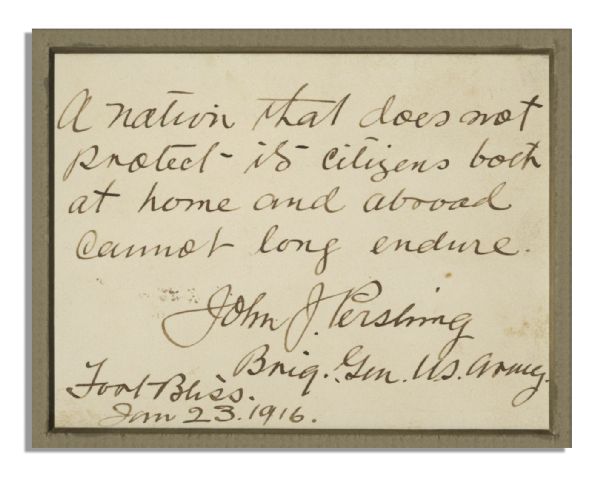 A nation that does not
protect its citizens both
at home and abroad
cannot long endure.
John J. Pershing
Brig. Gen. U.S. Army.
Fort Bliss.
Jan 23. 1916.